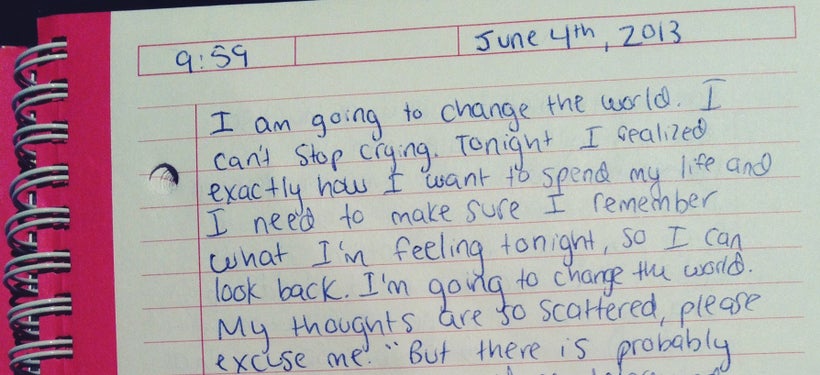 9:59
June 4th, 2013
I am going to change the world. I
can't stop crying. Tonight I realized
exactly how I want to spend my life and
I need to make sure I remember
what I'm feeling tonight, so I can
look back. I'm going to change the world.
My thoughts are so scattered, please
excuse me. "But there is probably